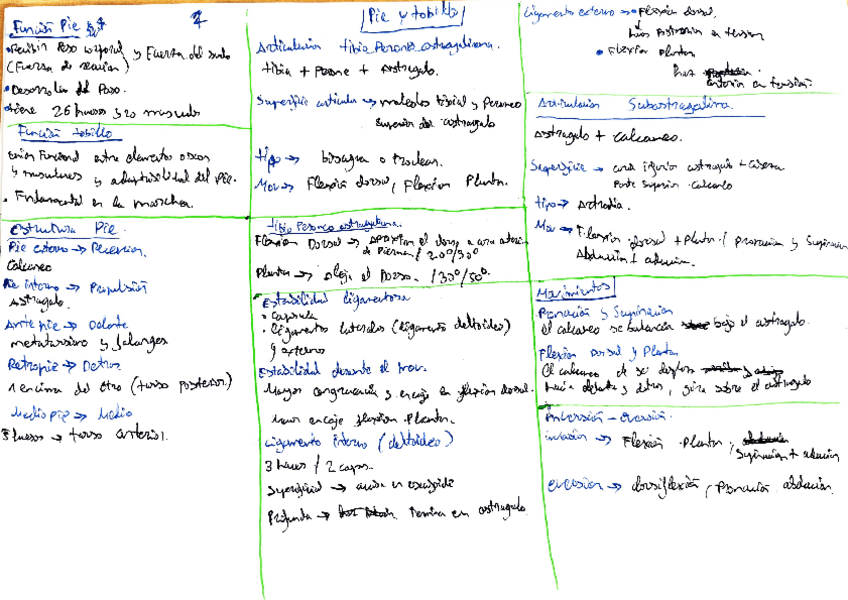 Función Pie
• Recibir Peso corporal y Fuerza del suelo
(Fuerza de reacción)
• Desarrollar del Paso.
• tiene 26 huesos y 20 musculos
Función tobillo
unión Funcional entre elementos oseos
y musculares y adaptabilidad del Pie.
• Fundamental en la marcha.
Estructura Pie.
Pie externo → Recepcion.
Calcaneo
Pie interno → Propulsión
Astragalo.
Ante pie → Delante
metatarsiano y falanges
Retropie → Detras
1 encima del otro (tarso Posterior)
Medio Pie → Medio
5 huesos → tarso anterior.
Pie y tobillo
Articulacion tibia Peronea astragalina.
tibia + Perone + Astragalo.
Superficie articula → maleolos tibial y Peroneo
Superior astragalo
tipo → bisagra o troclear.
Mov → Flexión dorsal, Flexion Plantar.
tibia Peronea astragalina.
Flexion Dorsal → Aproxima el dorso a cara anterior
de Pierna / 20º/30º
Plantar → Aleja el Dorso. / 30º/50º.
Estabilidad ligamentosa
• Capsula
• Ligamentos laterales (ligamento deltoideo)
y externos
Estabilidad durante el mov.
Mayor congruencia y encaje en flexión dorsal.
Menor encaje flexion Plantar.
Ligamento interno (deltoideo)
3 haces / 2 capas.
Superficial → acaba en escafoide
Profunda → Termina en astragalo
Ligamento externo → • Flexion dorsal.
haz Posterior en tension
• Flexion Plantar
haz anterior en tensión.
Articulacion Subastragalina.
Astragalo + calcaneo.
Superficie → cara inferior astragalo + cara
Parte Superior calcaneo
tipo → Artrodia.
Mov → Flexion dorsal + Plantar / Pronacion y Supinacion
Abduccion + aduccion.
Movimientos
Pronación y Supinacion
el calcaneo se balancea bajo el astragalo.
Flexion Dorsal y Plantar
El calcaneo se desplaza
hacia delante y detras, gira sobre el astragalo
Inversión - eversión.
inversion → Flexión Plantar, Supinacion + aduccion
eversion → dorsiflexión, Pronación abduccion.